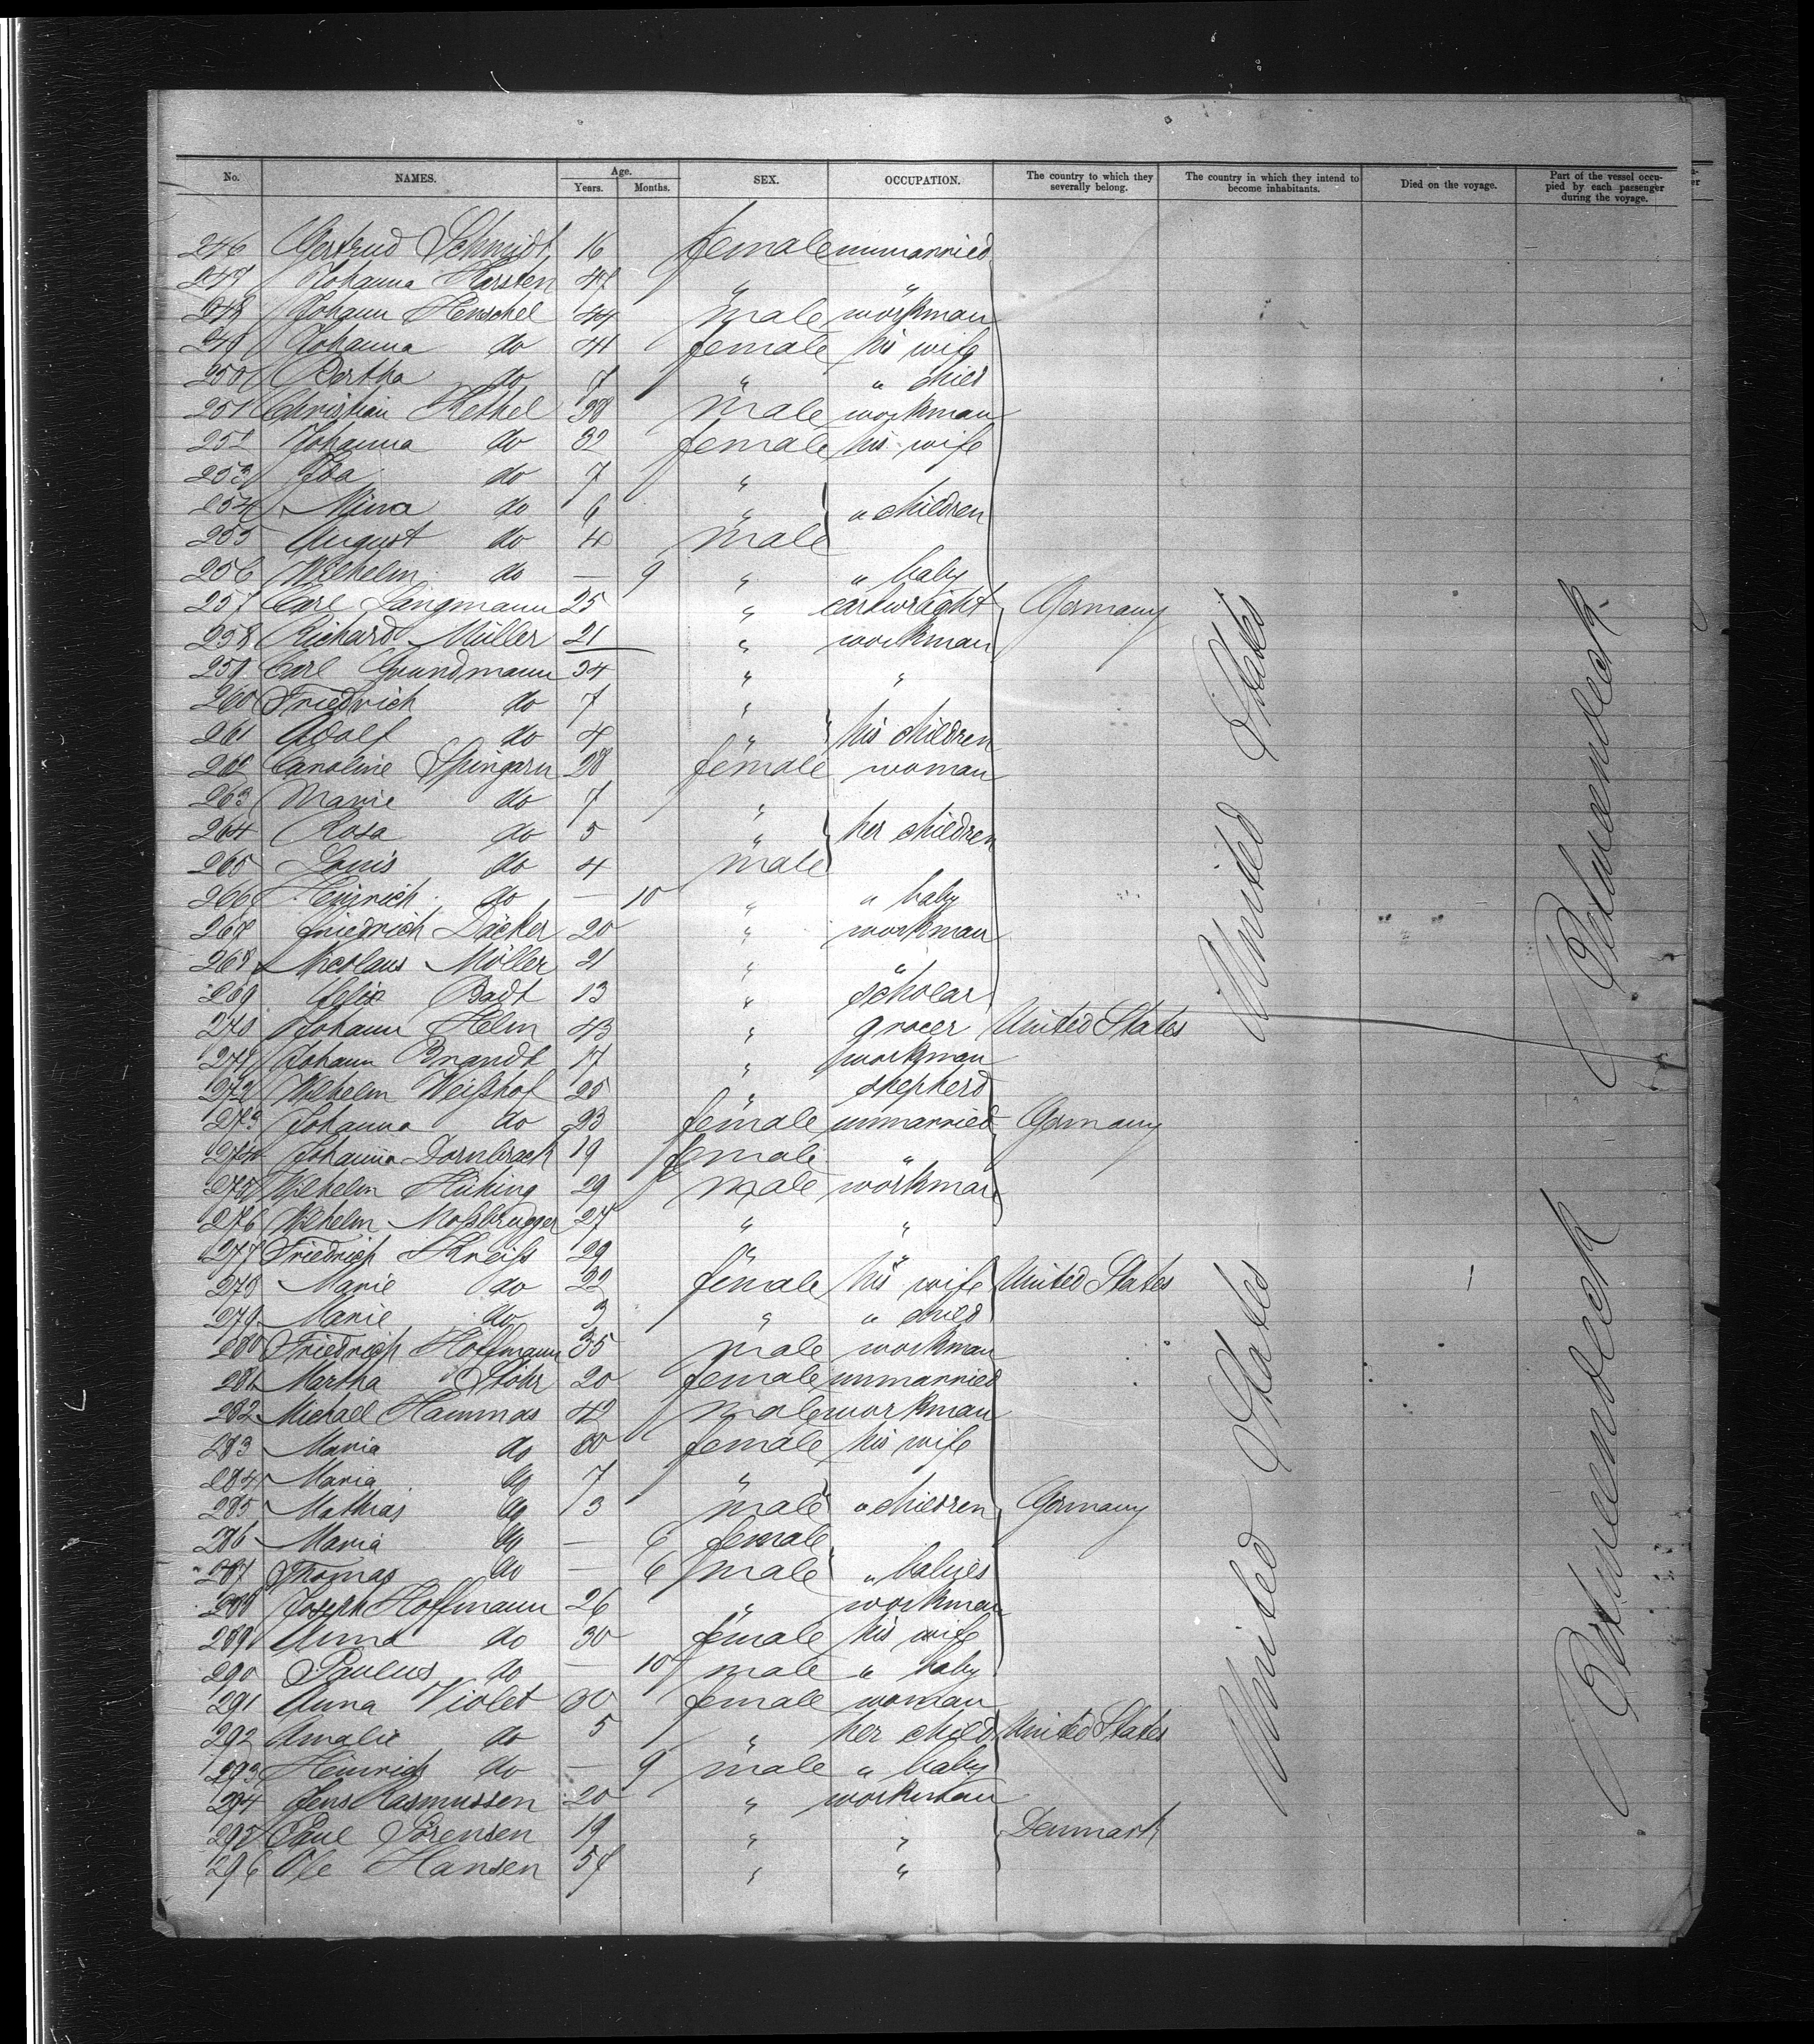 No. NAMES. Age. Years. Months. SEX. OCCUPATION. The country to which they severally belong. The country in which they intend to become inhabitants. Died on the voyage. Part of the vessel occupied by each passenger during the voyage.
246 Gertrud Schmidt 16 female unmarried
247 Johanna Karsten 47 " "
248 Johann Henschel 44 male workman
249 Johanna do 41 female his wife
250 Bertha do 7 " " child
251 Christian Hethel 38 male workman
252 Johanna do 32 female his wife
253 Ida do 7 "
254 Minna do 6 " " children
255 August do 4 male
256 Wilhelm do — 9 " " baby
257 Carl Langmann 25 " cartwright Germany
258 Richard Müller 21 " workman
259 Carl Grundmann 34 " "
260 Friedrich do 7 "
261 Adolf do 4 " his children
262 Caroline Spingarn 28 female woman
263 Marie do 7 "
264 Rosa do 5 " her children
265 Louis do 4 male
266 Heinrich do — 10 " " baby
267 Friedrich Däcker 20 " workman
268 Nicolaus Möller 21 " "
269 Felix Badt 13 " scholar
270 Johann Helm 43 " grocer United States
271 Johann Brandt 17 " workman
272 Wilhelm Weißhof 25 " shepherd
273 Johanna do 23 female unmarried Germany
274 Johanna Dornbrach 19 female "
275 Wilhelm Hüking 29 male workman
276 Wilhelm Moßbrugger 27 " "
277 Friedrich Kreiß 29 " "
278 Marie do 22 female his wife United States
279 Marie do 3 " " child
280 Friedrich Hoffmann 35 male workman
281 Martha Stöhr 20 female unmarried
282 Michael Hammas 42 male workman
283 Maria do 30 female his wife
284 Maria do 7 "
285 Mathias do 3 male " children Germany
286 Maria do — 6 female
287 Thomas do — 6 male " babies
288 Joseph Hoffmann 26 " workman
289 Anna do 30 female his wife
290 Paulus do — 10 male " baby
291 Anna Violet 30 female woman
292 Amalie do 5 " her child United States
293 Heinrich do — 9 male " baby
294 Jens Rasmussen 20 " workman
295 Paul Sörensen 19 " " Denmark
296 Ole Hansen 54 " "
United States
United States
Betweendeck
Betweendeck